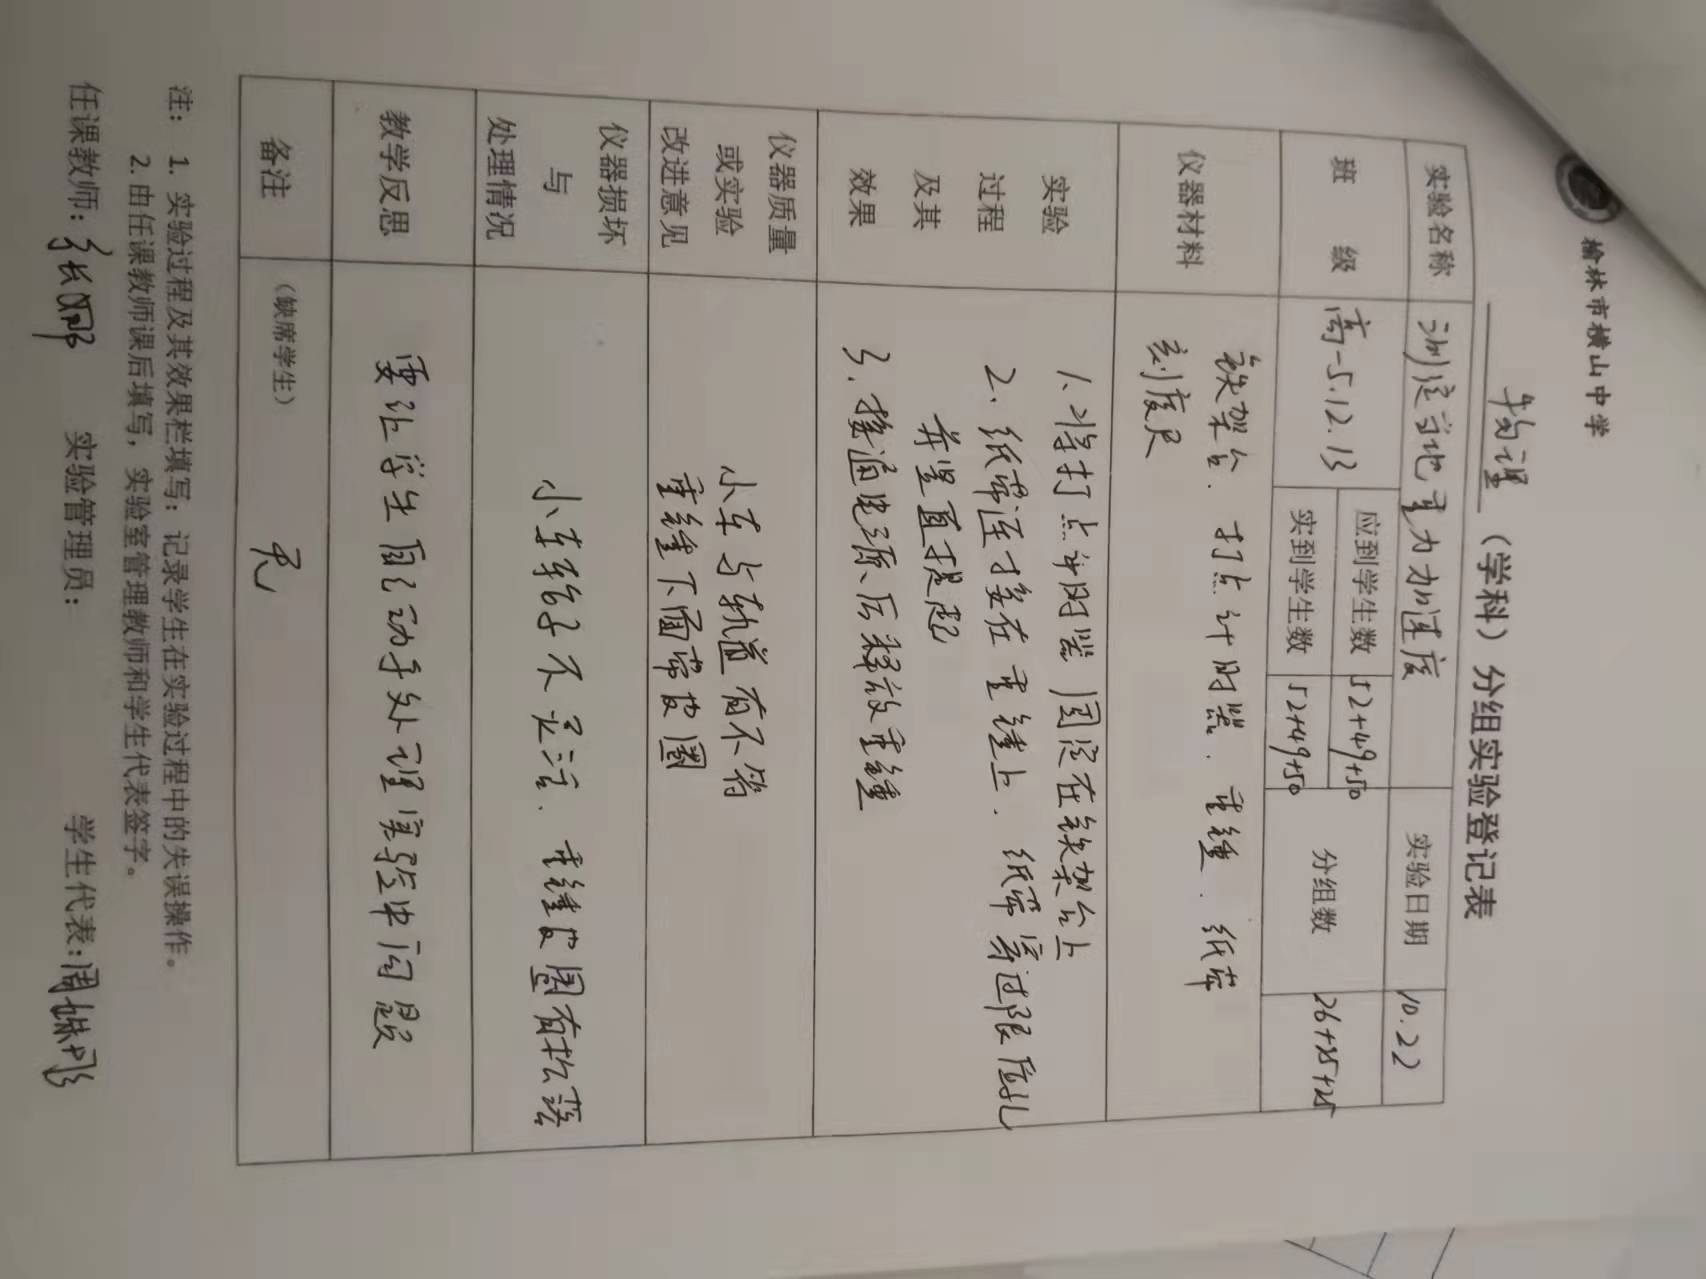 榆林市横山中学
物理（学科）分组实验登记表
实验名称 测定当地重力加速度 实验日期 10.22
班 级 高一5.12.13 应到学生数 52+49+50 分组数 26+25+25
实到学生数 52+49+50
仪器材料 铁架台、打点计时器、重锤、纸带
刻度尺
实验
过程
及其
效果
1、将打点计时器固定在铁架台上
2、纸带连接在重锤上、纸带穿过限位孔
并竖直提起
3、接通电源后释放重锤
仪器质量
或实验
改进意见
小车与轨道有不符
重锤下面带皮圈
仪器损坏
与
处理情况
小车轮子不灵活、重锤皮圈有松落
教学反思 要让学生自己动手处理实验中问题
备注 （缺席学生） 无
注：1. 实验过程及其效果栏填写：记录学生在实验过程中的失误操作。
2. 由任课教师课后填写，实验室管理教师和学生代表签字。
任课教师： 实验管理员： 学生代表：周姝彤